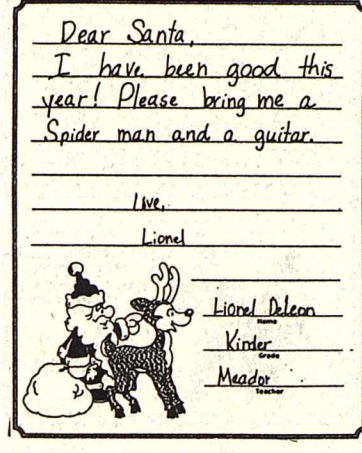 Dear Santa,
I have been good this
year! Please bring me a
Spider man and a guitar.
love,
Lionel
Lionel Deleon
Name
Kinder
Grade
Meador
Teacher